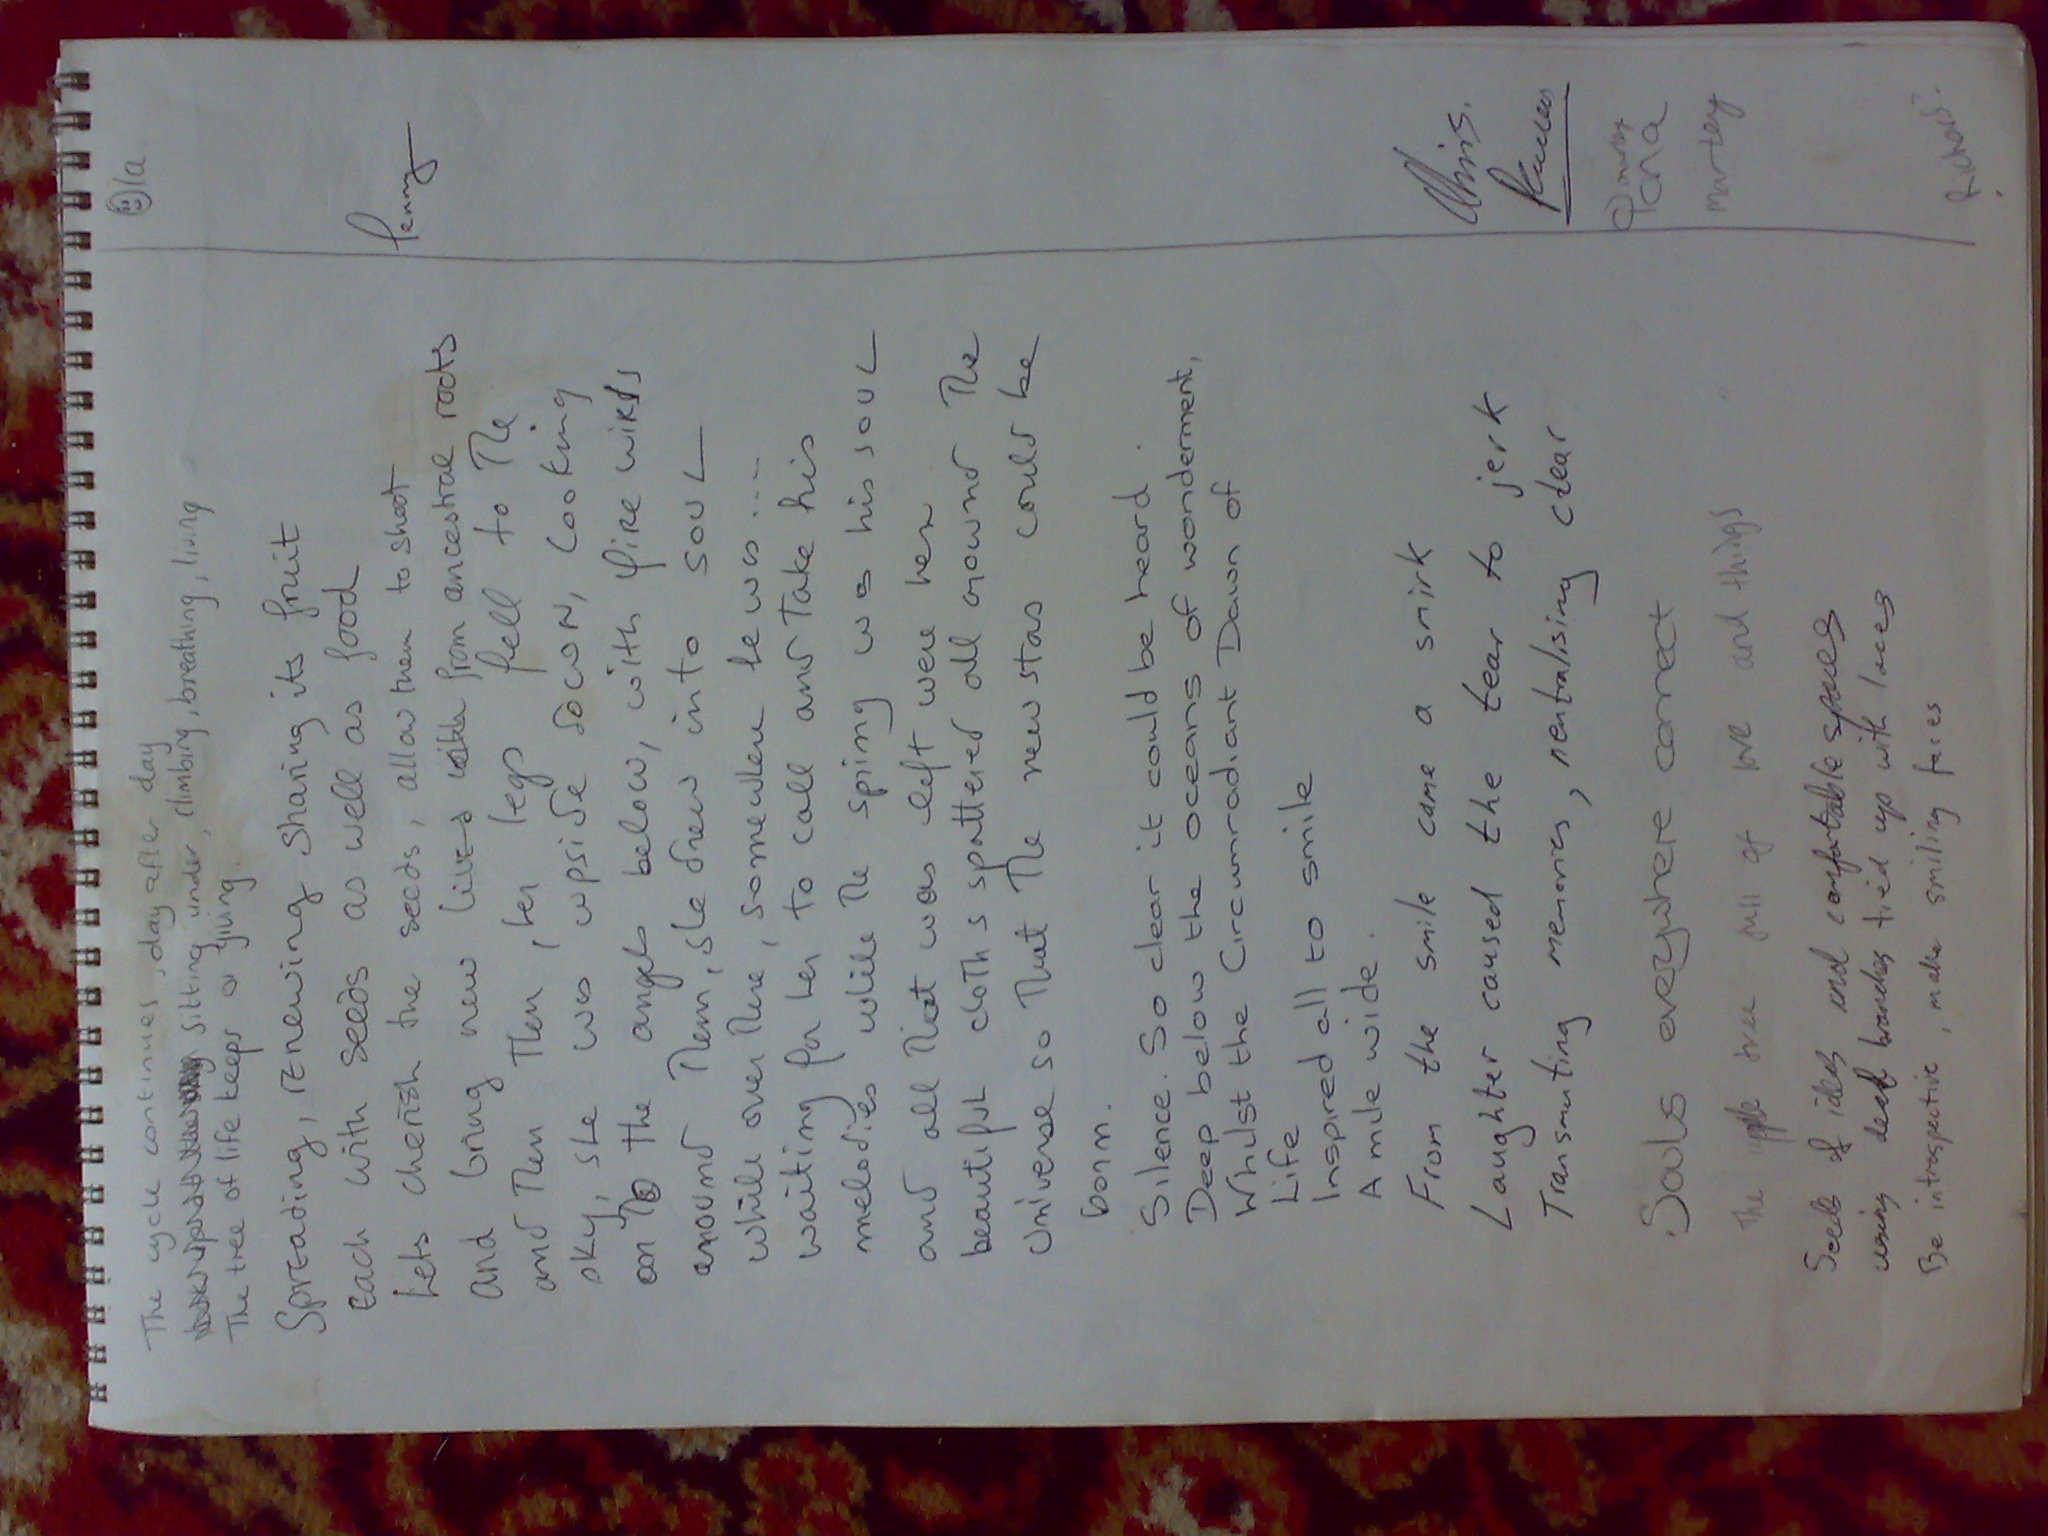 The cycle continues, day after day
sitting under, climbing, breathing, living
The tree of life keeps on giving.
Spreading, renewing sharing its fruit
Each with seeds as well as food
Lets cherish the seeds, allow them to shoot
and bring new lives from ancestral roots
and Then Then, her legs fell to The
sky, she was upside down, Looking
on The angels below, with fire
around Them, she drew into SOUL
while over There, somewhere he was....
waiting for her to call and Take his
melodies while The spring was his SOUL
and all That was left were her
beautiful cloths spattered all around The
Universe so That The new stars could be
born.
Silence. So clear it could be heard.
Deep below the oceans of wonderment,
Whilst the Circumradiant Dawn of
Life
Inspired all to smile
A mile wide.
From the smile came a smirk
Laughter caused the tear to jerk
Transmuting memories, neutralising clear
Souls everywhere connect
The apple tree full of love and things
Seeds of ideas and comfortable spaces
using dead branches tied up with laces
Be introspective, make smiling faces
1a
Penny
Chris.
martey
Richard.